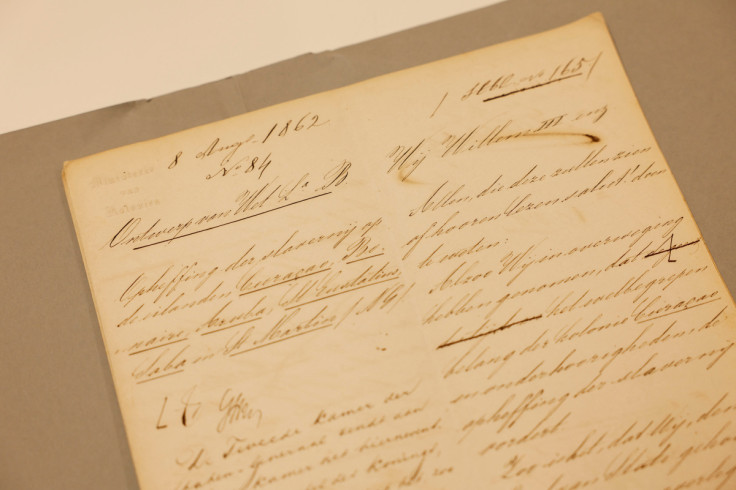 8 Aug. 1862
No 84
Ontwerp van Wet La B.
Opheffing der slavernij op
de eilanden Curaçao, Bo-
naire, Aruba, St Eustatius,
Saba en St Martin (NG)
De Tweede Kamer der
Staten-Generaal zendt aan
Kamer
des Konings,
/ Stbl. no 165 /
Wij Willem III enz
Allen, die deze zullen zien
of hooren lezen, salut! doen
te weten:
Alzoo Wij in overweging
hebben genomen, dat
het welbegrepen
belang der kolonie Curaçao
en onderhoorigheden de
opheffing der slavernij
vordert.
Zoo is het, dat Wij, den
Raad van State gehoord